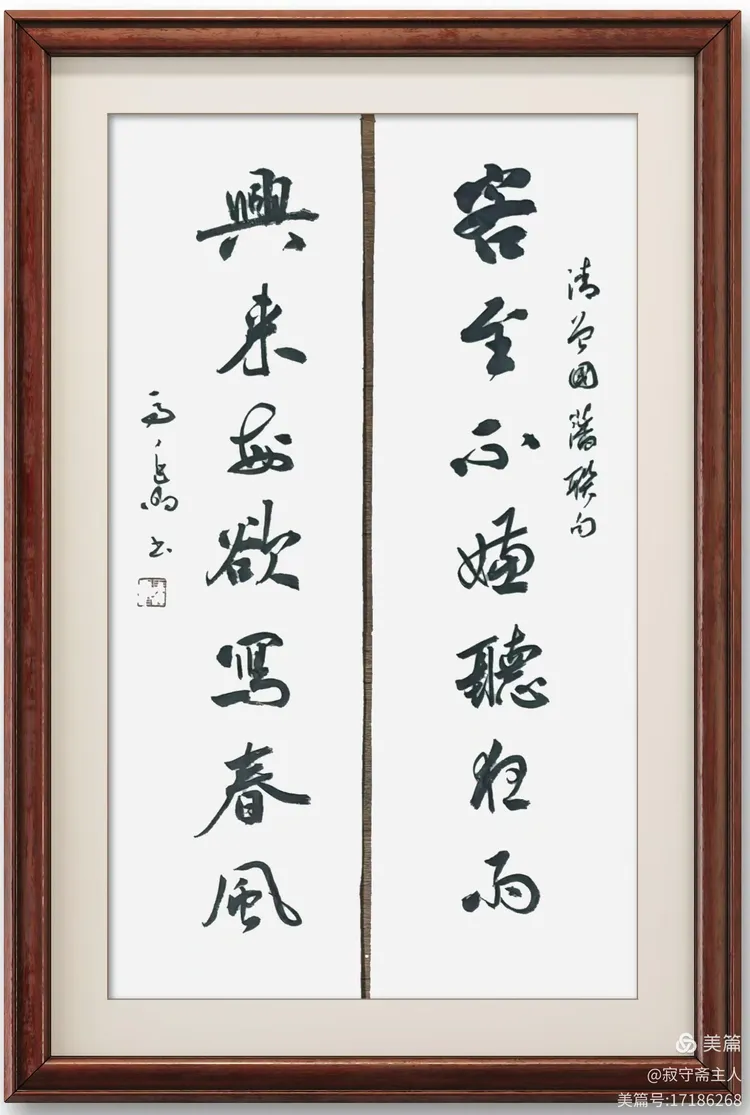 清曾國藩聯句
客至不嫌聽狂雨
興来每欲寫春風
书
美篇
@寂守斋主人
美篇号:17186268